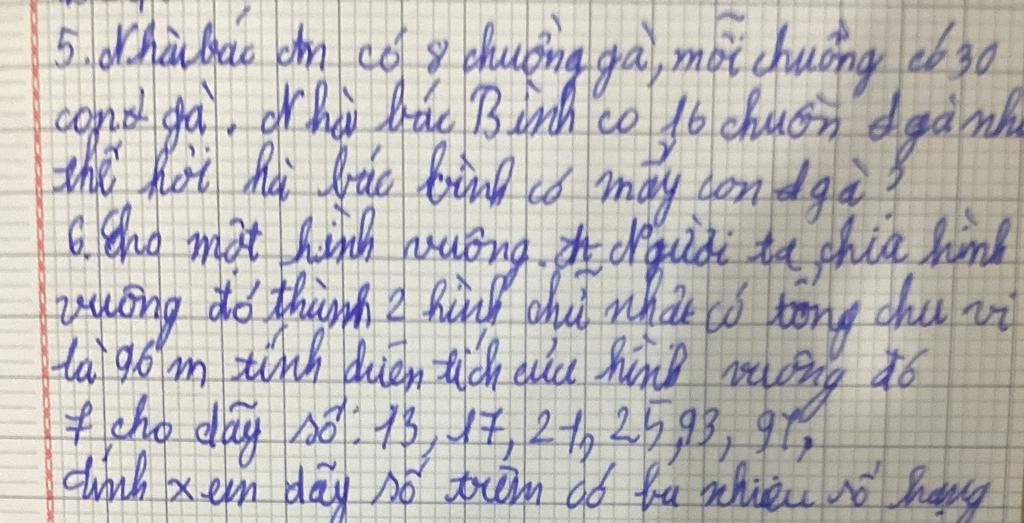 5. Nhà bác An có 8 chuồng gà, mỗi chuồng có 30
con gà. Nhà bác Bình co 16 chuồn gà nh
thế hỏi hà bác bình có mấy con gà?
6. Cho một hình vuông. Người ta chia hình
vuông đó thành 2 hình chữ nhât có tổng chu vi
là 96 m tính diện tích của hình vuông đó
7 cho dãy số: 13, 17, 21, 25, 93, 97,
tính xem dãy số trêm có ba nhiêu số hạng